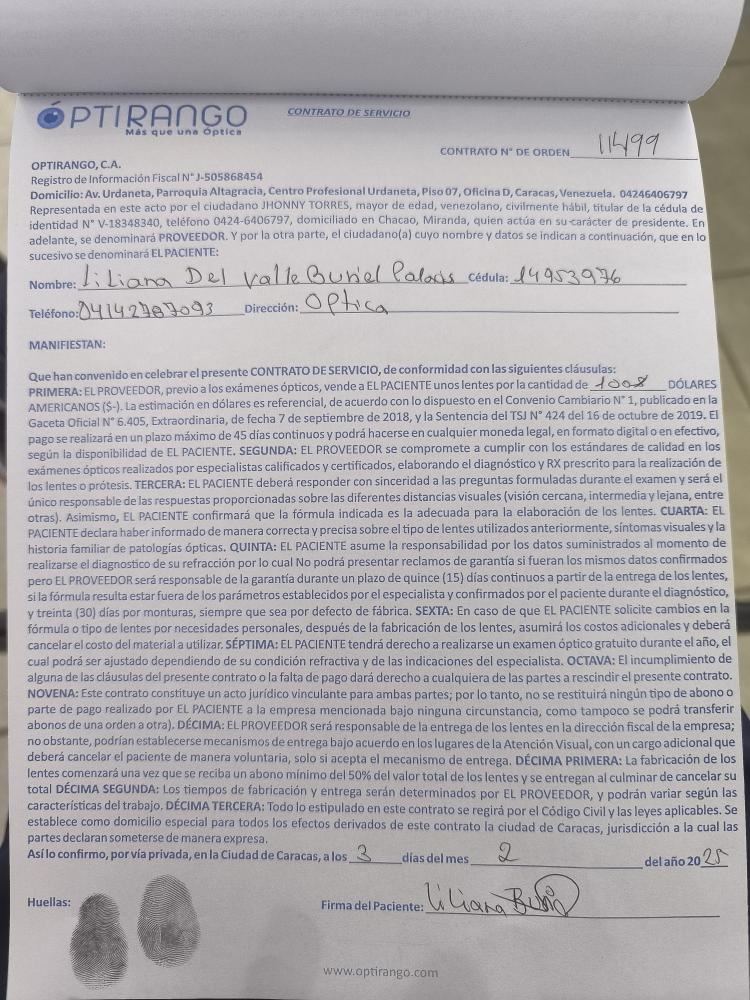 ÓPTIRANGO
Más que una Óptica
CONTRATO DE SERVICIO
CONTRATO N° DE ORDEN 11499
OPTIRANGO, C.A.
Registro de Información Fiscal N° J-505868454
Domicilio: Av. Urdaneta, Parroquia Altagracia, Centro Profesional Urdaneta, Piso 07, Oficina D, Caracas, Venezuela. 04246406797
Representada en este acto por el ciudadano JHONNY TORRES, mayor de edad, venezolano, civilmente hábil, titular de la cédula de
identidad N° V-18348340, teléfono 0424-6406797, domiciliado en Chacao, Miranda, quien actúa en su carácter de presidente. En
adelante, se denominará PROVEEDOR. Y por la otra parte, el ciudadano(a) cuyo nombre y datos se indican a continuación, que en lo
sucesivo se denominará EL PACIENTE:
Nombre: Liliana Del Valle Buriel Palacis Cédula: 14953976
Teléfono: 04142787093 Dirección: Optica
MANIFIESTAN:
Que han convenido en celebrar el presente CONTRATO DE SERVICIO, de conformidad con las siguientes cláusulas:
PRIMERA: EL PROVEEDOR, previo a los exámenes ópticos, vende a EL PACIENTE unos lentes por la cantidad de DÓLARES
AMERICANOS ($-). La estimación en dólares es referencial, de acuerdo con lo dispuesto en el Convenio Cambiario N° 1, publicado en la
Gaceta Oficial N° 6.405, Extraordinaria, de fecha 7 de septiembre de 2018, y la Sentencia del TSJ N° 424 del 16 de octubre de 2019. El
pago se realizará en un plazo máximo de 45 días continuos y podrá hacerse en cualquier moneda legal, en formato digital o en efectivo,
según la disponibilidad de EL PACIENTE. SEGUNDA: EL PROVEEDOR se compromete a cumplir con los estándares de calidad en los
exámenes ópticos realizados por especialistas calificados y certificados, elaborando el diagnóstico y RX prescrito para la realización de
los lentes o prótesis. TERCERA: EL PACIENTE deberá responder con sinceridad a las preguntas formuladas durante el examen y será el
único responsable de las respuestas proporcionadas sobre las diferentes distancias visuales (visión cercana, intermedia y lejana, entre
otras). Asimismo, EL PACIENTE confirmará que la fórmula indicada es la adecuada para la elaboración de los lentes. CUARTA: EL
PACIENTE declara haber informado de manera correcta y precisa sobre el tipo de lentes utilizados anteriormente, síntomas visuales y la
historia familiar de patologías ópticas. QUINTA: EL PACIENTE asume la responsabilidad por los datos suministrados al momento de
realizarse el diagnostico de su refracción por lo cual No podrá presentar reclamos de garantía si fueran los mismos datos confirmados
pero EL PROVEEDOR será responsable de la garantía durante un plazo de quince (15) días continuos a partir de la entrega de los lentes,
si la fórmula resulta estar fuera de los parámetros establecidos por el especialista y confirmados por el paciente durante el diagnóstico,
y treinta (30) días por monturas, siempre que sea por defecto de fábrica. SEXTA: En caso de que EL PACIENTE solicite cambios en la
fórmula o tipo de lentes por necesidades personales, después de la fabricación de los lentes, asumirá los costos adicionales y deberá
cancelar el costo del material a utilizar. SÉPTIMA: EL PACIENTE tendrá derecho a realizarse un examen óptico gratuito durante el año, el
cual podrá ser ajustado dependiendo de su condición refractiva y de las indicaciones del especialista. OCTAVA: El incumplimiento de
alguna de las cláusulas del presente contrato o la falta de pago dará derecho a cualquiera de las partes a rescindir el presente contrato.
NOVENA: Este contrato constituye un acto jurídico vinculante para ambas partes; por lo tanto, no se restituirá ningún tipo de abono o
parte de pago realizado por EL PACIENTE a la empresa mencionada bajo ninguna circunstancia, como tampoco se podrá transferir
abonos de una orden a otra). DÉCIMA: EL PROVEEDOR será responsable de la entrega de los lentes en la dirección fiscal de la empresa;
no obstante, podrían establecerse mecanismos de entrega bajo acuerdo en los lugares de la Atención Visual, con un cargo adicional que
deberá cancelar el paciente de manera voluntaria, solo si acepta el mecanismo de entrega. DÉCIMA PRIMERA: La fabricación de los
lentes comenzará una vez que se reciba un abono mínimo del 50% del valor total de los lentes y se entregan al culminar de cancelar su
total DÉCIMA SEGUNDA: Los tiempos de fabricación y entrega serán determinados por EL PROVEEDOR, y podrán variar según las
características del trabajo. DÉCIMA TERCERA: Todo lo estipulado en este contrato se regirá por el Código Civil y las leyes aplicables. Se
establece como domicilio especial para todos los efectos derivados de este contrato la ciudad de Caracas, jurisdicción a la cual las
partes declaran someterse de manera expresa.
Así lo confirmo, por vía privada, en la Ciudad de Caracas, a los 3 días del mes 2 del año 2025
Huellas:
Firma del Paciente: Liliana Buriel
www.optirango.com